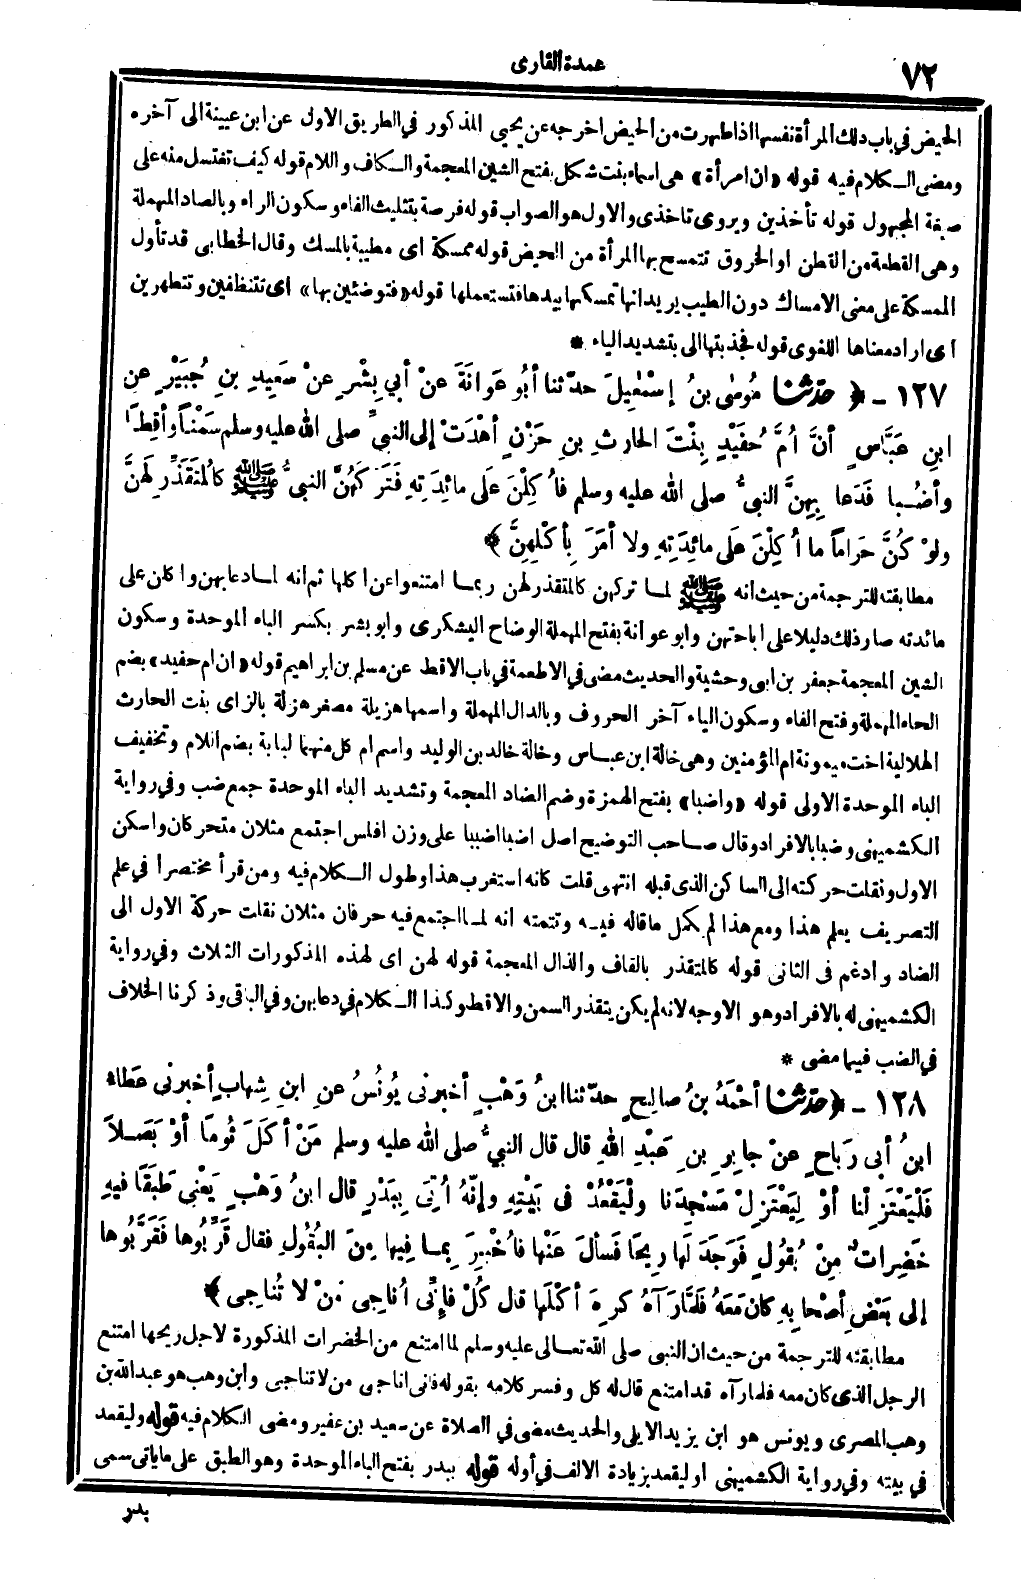 ٧٢
عمدة القارى
الحيض في باب دلك المرأة نفسها اذا طهرت من الحيض اخرجه عن يحيى المذكور في الطريق الاول عن ابن عيينة الى آخره
ومضى الكلام فيه قوله «ان امرأة» هى اسماء بنت شكل بفتح الشين المعجمة والكاف واللام قوله كيف تغتسل منه على
صيغة المجهول قوله تأخذين ويروى تاخذى والاول هو الصواب قوله فرصة بتثليث الفاء وسكون الراء وبالصاد المهملة
وهى القطعة من القطن او الخروق تتمسح بها المرأة من الحيض قوله ممسكة اى مطيبة بالمسك وقال الخطابى قد تأول
الممسكة على معنى الامساك دون الطيب يريد انها تمسكها بيدها فتستعملها قوله «فتوضئين بها» اى تتنظفين وتتطهرين
اى اراد معناها اللغوى قوله فجذبتها الى بتشديد الياء *
١٢٧ - ﴿ حدّثنا مُوسٰى بنُ إسْمٰعِيلَ حدّثنا أبُو عَوَانَةَ عنْ أبي بِشْرٍ عنْ سَعِيدِ بنِ جُبَيْرٍ عنِ
ابنِ عَبَّاسٍ أنَّ اُمَّ حُفَيْدٍ بِنْتَ الحارثِ بنِ حَزْنٍ أهْدَتْ إلى النبيِّ صلى الله عليه وسلم سَمْنًا وأقِطًا
وأضُبا فَدَعا بِهِنَّ النبىُّ صلى الله عليه وسلم فأُكِلْنَ عَلَى مائِدَتِهِ فَتَرَكَهُنَّ النبىُّ ﷺ كالمُتَقَذِّرِ لَهُنَّ
ولوْ كُنَّ حَرَاماً ما اُكِلْنَ عَلَى مائِدَتِهِ ولا أمَرَ بِأكْلِهِنَّ ﴾
مطابقته للترجمة من حيث انه ﷺ لما تركهن كالمتقذر لهن ربما امتنعوا عن اكلها ثم انه لما دعا بهن واكلن على
مائدته صار ذلك دليلا على اباحتهن وابو عوانة بفتح المهملة الوضاح اليشكرى وابو بشر بكسر الباء الموحدة وسكون
الشين المعجمة جعفر بن ابى وحشية والحديث مضى في الاطعمة في باب الاقط عن مسلم بن ابراهيم قوله «ان ام حفيد» بضم
الحاء المهملة وفتح الفاء وسكون الياء آخر الحروف وبالدال المهملة واسمها هزيلة مصغر هزلة بالزاى بنت الحارث
الهلالية اخت ميمونة ام المؤمنين وهى خالة ابن عباس وخالة خالد بن الوليد واسم ام كل منهما لبابة بضم اللام وتخفيف
الباء الموحدة الاولى قوله «واضبا» بفتح الهمزة وضم الضاد المعجمة وتشديد الباء الموحدة جمع ضب وفي رواية
الكشميهنى وضبا بالافراد وقال صاحب التوضيح اصل اضبا اضببا على وزن افلس اجتمع مثلان متحركان واسكن
الاول ونقلت حركته الى الساكن الذى قبله انتهى قلت كانه استغرب هذا وطول الكلام فيه ومن قرأ مختصرا في علم
التصريف يعلم هذا ومع هذا لم يكمل ما قاله فيه وتتمته انه لما اجتمع فيه حرفان مثلان نقلت حركة الاول الى
الضاد وادغم فى الثانى قوله كالمتقذر بالقاف والذال المعجمة قوله لهن اى لهذه المذكورات الثلاث وفي رواية
الكشميهنى له بالافراد وهو الاوجه لانه لم يكن يتقذر السمن والاقط وكذا الكلام في دعابهن وفي الباقى وذكرنا الخلاف
في الضب فيما مضى *
١٢٨ - ﴿ حدّثنا أحْمَدُ بنُ صالِحٍ حدّثنا ابنُ وَهْبٍ أخبرنى يُونُسُ عنِ ابنِ شِهابٍ أخبرنى عَطاء
ابنُ أبى رَباحٍ عنْ جابِرِ بنِ عَبْدِ اللهِ قال قال النبيُّ صلى الله عليه وسلم مَنْ أكَلَ ثُومًا أوْ بَصَلاً
فَلْيَعْتَزِلْنا أوْ لِيَعْتَزِلْ مَسْجِدَنا ولْيَقْعُدْ فى بَيْتِهِ وإنّهُ اُتِىَ بِبَدْرٍ قال ابنُ وَهْبٍ يَعْنِى طَبَقًا فيهِ
خَضِراتٌ مِنْ بُقُولٍ فَوَجَدَ لَها رِيحًا فَسألَ عَنْها فاُخْبِرَ بِما فِيها مِنَ البُقُولِ فقال قَرِّبُوها فَقَرَّبُوها
إلى بَعْضِ أصْحابِهِ كان مَعَهُ فَلَمَّا رَآهُ كَرِهَ أكْلَها قال كُلْ فإنِّى اُناجِى مَنْ لا تُناجِى ﴾
مطابقته للترجمة من حيث ان النبى صلى الله تعالى عليه وسلم لما امتنع من الخضرات المذكورة لاجل ريحها امتنع
الرجل الذى كان معه فلما رآه قد امتنع قال له كل وفسر كلامه بقوله فانى اناجى من لا تناجى وابن وهب هو عبد الله بن
وهب المصرى ويونس هو ابن يزيد الايلى والحديث مضى في الصلاة عن سعيد بن عفير ومضى الكلام فيه قوله وليقعد
في بيته وفي رواية الكشميهنى او ليقعد بزيادة الالف في أوله قوله ببدر بفتح الباء الموحدة وهو الطبق على ما ياتى سمى
بدر